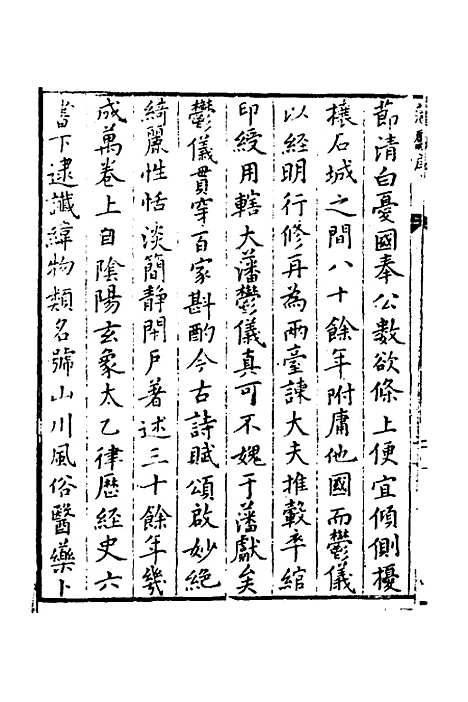 節清白憂國奉公數欲條上便宜傾側擾
攘石城之間八十餘年附庸他國而鬱儀
以經明行修再為兩臺諫大夫推轂率綰
印綬用轄大藩鬱儀真可不媿于藩獻矣
鬱儀貫穿百家斟酌今古詩賦頌啟妙絕
綺麗性恬淡簡靜閉戶著述三十餘年幾
成萬卷上自陰陽玄象太乙律曆經史六
書下逮讖緯物類名號山川風俗醫藥卜